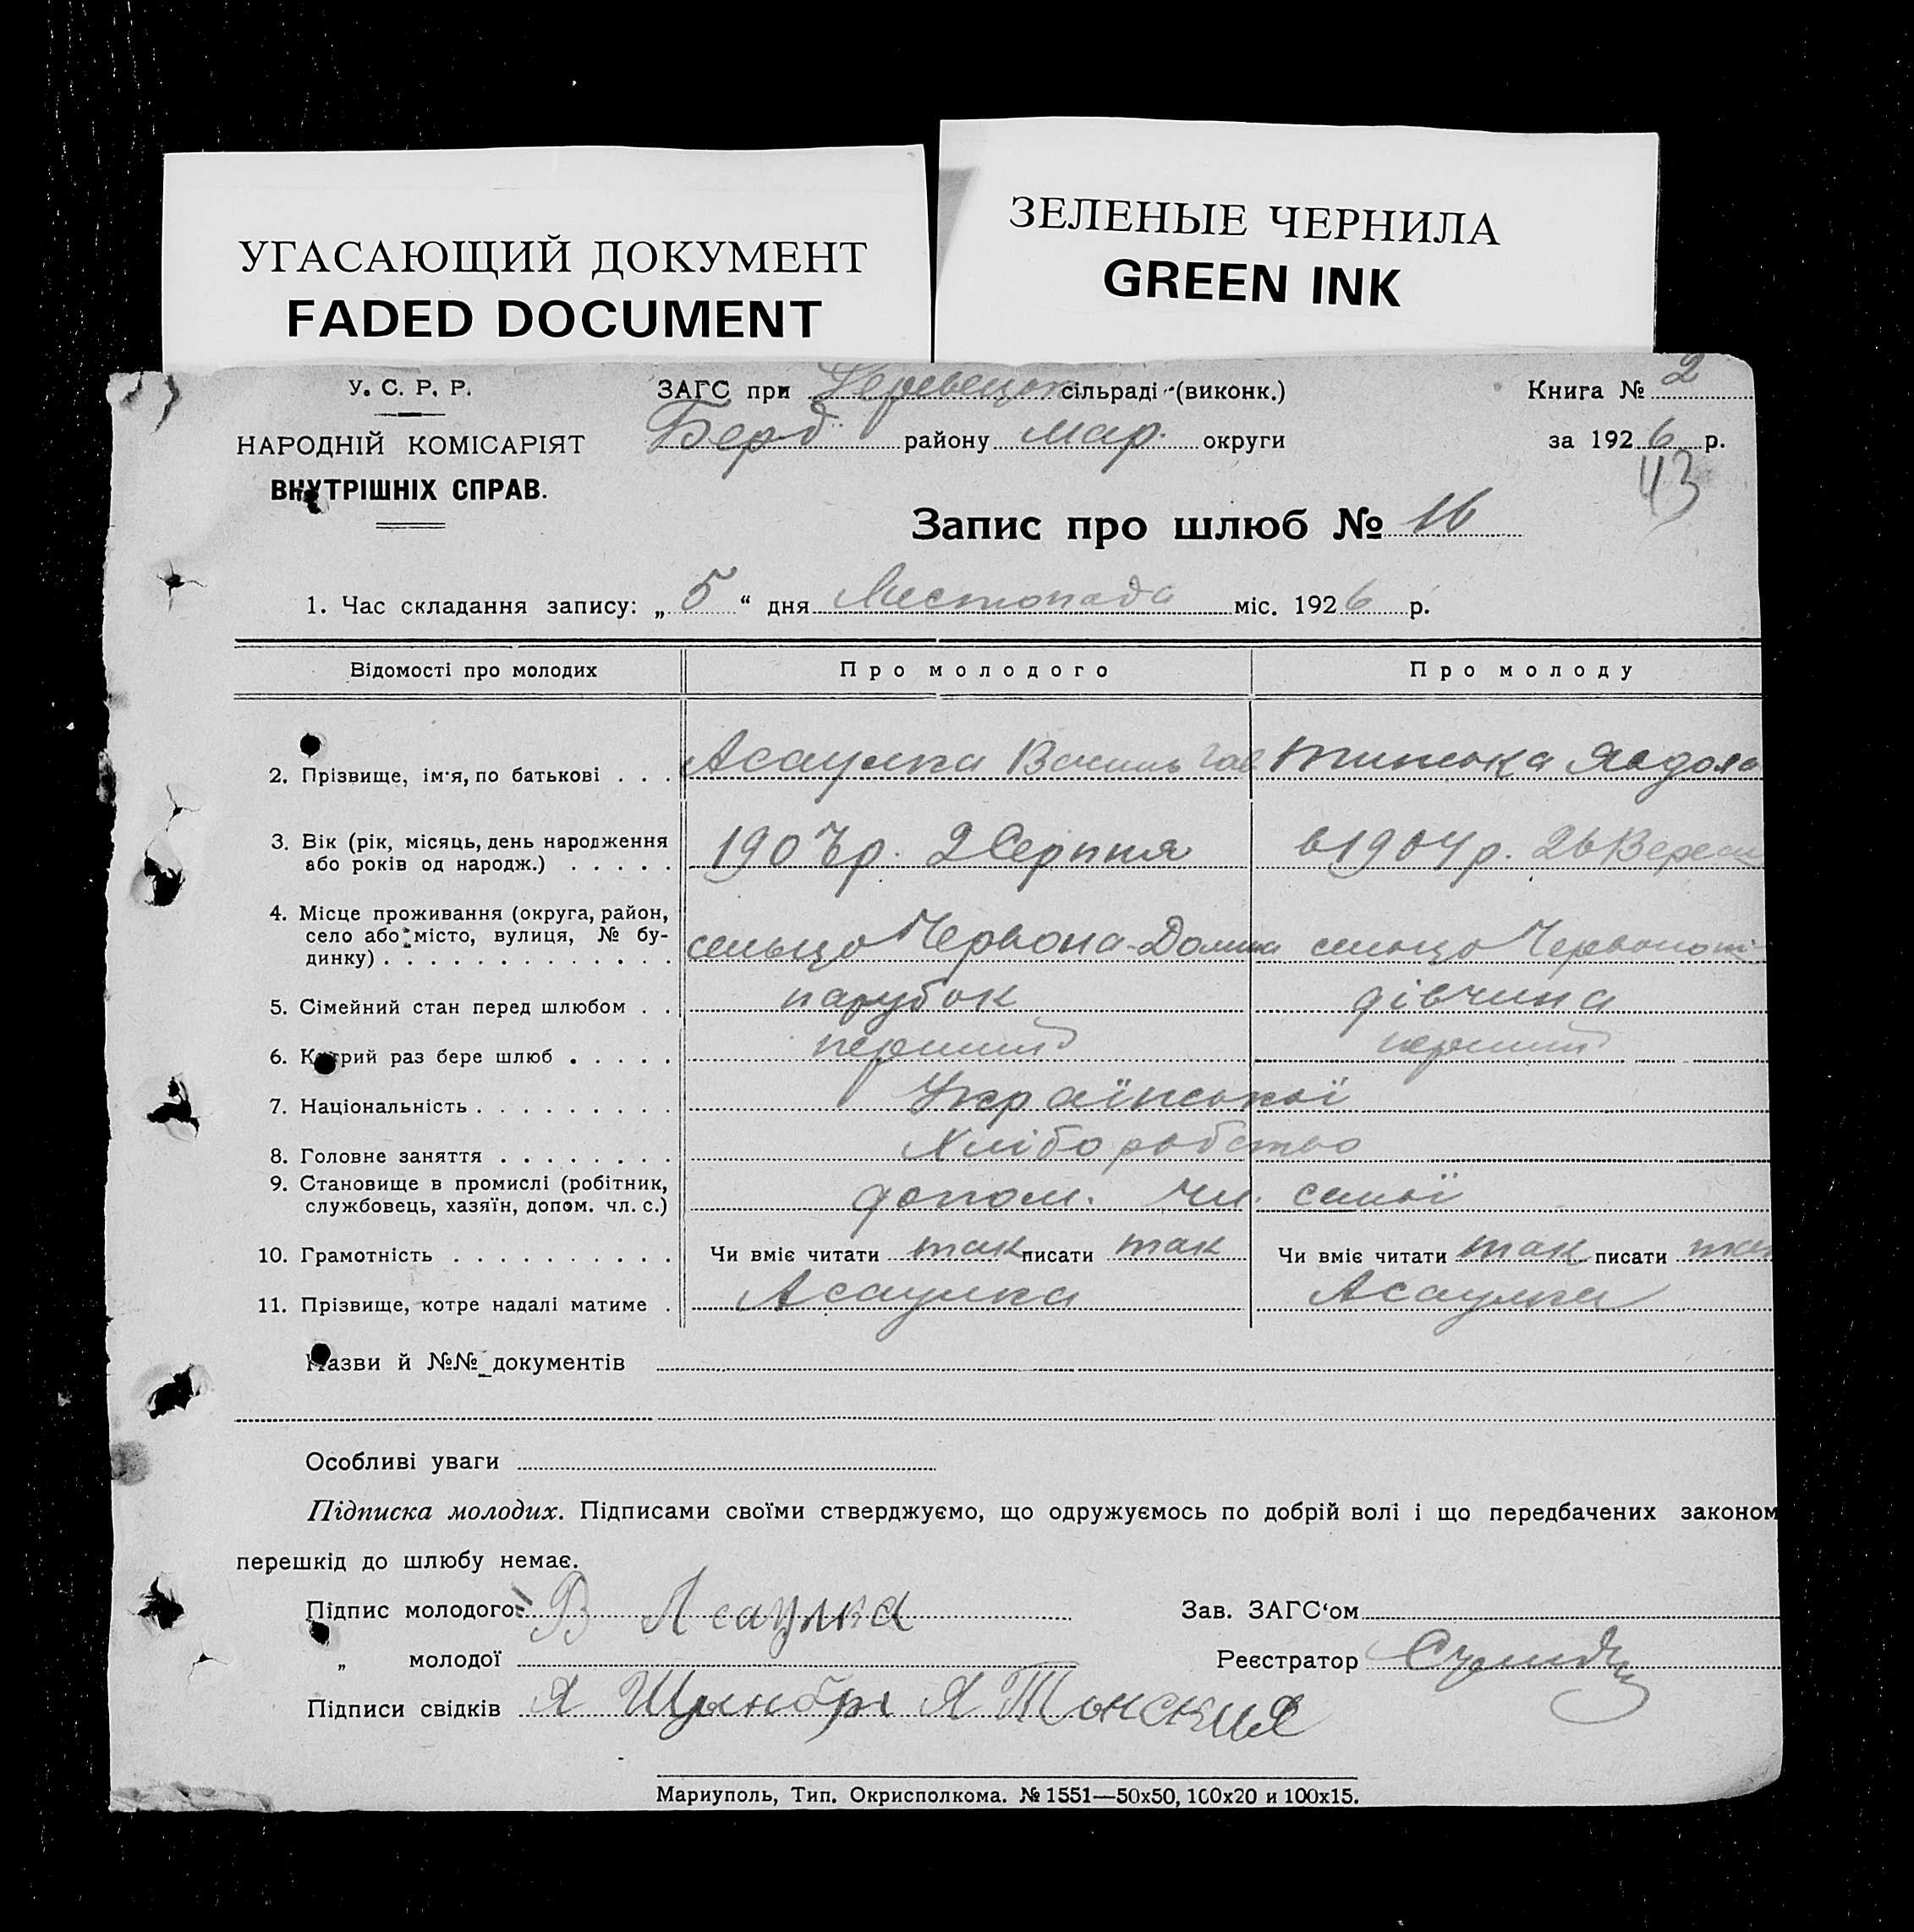 УГАСАЮЩИЙ ДОКУМЕНТ
FADED DOCUMENT
ЗЕЛЕНЫЕ ЧЕРНИЛА
GREEN INK
У. С. Р. Р.
НАРОДНІЙ КОМІСАРІЯТ
ВНУТРІШНІХ СПРАВ.
ЗАГС при сільраді (виконк.)
Берд. району Мар. округи
Книга № 2
за 1926 р.
43
Запис про шлюб № 16
1. Час складання запису: „5“ дня Листопада міс. 1926 р.
Відомості про молодих Про молодого Про молоду
2. Прізвище, ім'я, по батькові . . . Асаулка Василь Гав Явдоха
3. Вік (рік, місяць, день народження
або років од народж.) . . . . . 1907 р. 2 Серпня 1904 р. 26 Вересн
4. Місце проживання (округа, район,
село або місто, вулиця, № бу-
динку) . . . . . . . . . . . . . сельцо Червона-Долина сельцо
5. Сімейний стан перед шлюбом . . парубок дівчина
6. Котрий раз бере шлюб . . . . . перший перший
7. Національність . . . . . . . . . Української
8. Головне заняття . . . . . . . . Хліборобство
9. Становище в промислі (робітник,
службовець, хазяїн, допом. чл. с.) допом. чл. семьї
10. Грамотність . . . . . . . . . . Чи вміє читати так писати так Чи вміє читати так писати так
11. Прізвище, котре надалі матиме . Асаулка Асаулка
Назви й №№ документів
Особливі уваги
Підписка молодих. Підписами своїми стверджуємо, що одружуємось по добрій волі і що передбачених законом
перешкід до шлюбу немає.
Підпис молодого: В Асаулка Зав. ЗАГС‘ом
„ молодої Реєстратор
Підписи свідків
Мариуполь, Тип. Окрисполкома. № 1551—50х50, 100х20 и 100х15.